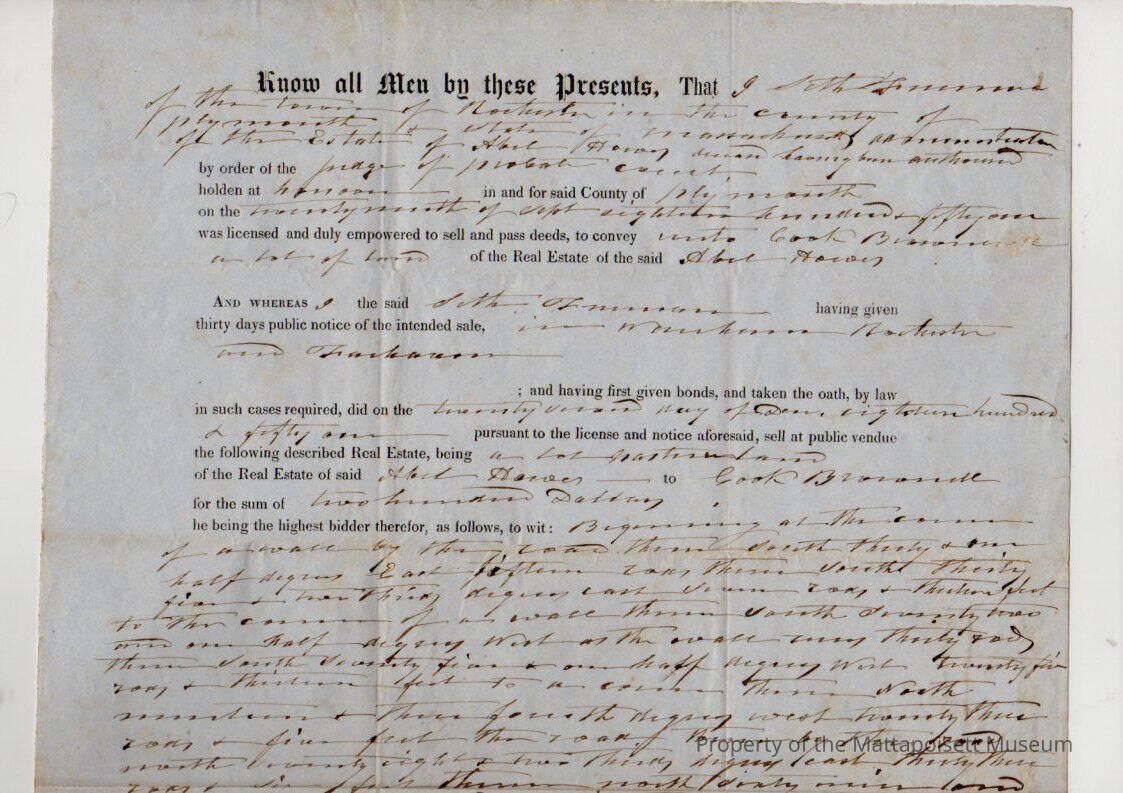 Know all Men by these Presents, That I Seth Freeman
of the town of Rochester in the county of
plymouth & State of massachusetts administrator
of the Estate of Abel Howes deceasd having bun authorised
by order of the judge of probate court
holden at hanover in and for said County of plymouth
on the twentynineth of Sept eighteen hundred & fifty one
was licensed and duly empowered to sell and pass deeds, to convey unto Cook Brownell
a lot of land of the Real Estate of the said Abel Howes
AND WHEREAS I the said Seth Freeman having given
thirty days public notice of the intended sale, in Wareham Rochester
and Fairhaven
; and having first given bonds, and taken the oath, by law
in such cases required, did on the day of eighteen hundred
& fifty one pursuant to the license and notice aforesaid, sell at public vendue
the following described Real Estate, being a lot pasture land
of the Real Estate of said Abel Howes to Cook Brownell
for the sum of two hundred Dollars
he being the highest bidder therefor, as follows, to wit: Beginning at the corner
of a wall by the road South thirty & one
half degrees East fifteen rods South thirty
five & two thirds degrees east Seven rods & thirteen feet
to the corner of a wall South Seventy two
and one half degrees West as the wall runs thirty rods
South Seventy five & one half degrees West twenty five
rods & thirteen feet to a corner North
nineteen & three fourth degrees west twenty three
rods & five feet the road by the road
north seventy eight & two thirds degrees east thirty three
rods & six feet north sixty nine and
Property of the Mattapoisett Museum